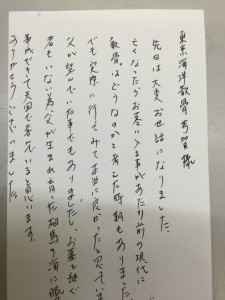 東京海洋散骨 考賀様
先日は大変お世話になりました。
亡くなったらお墓に入る事があたり前の現代に
散骨はどうなのかと考えた時期もありました。
でも実際に行ってみて本当に良かったと思っていま
父が望んでいた事でもありましたし、お墓を継ぐ
者もいない為、父が生まれ育った相馬の海に眠
事ができて天国で喜んでいると思います。
ありがとうございました。